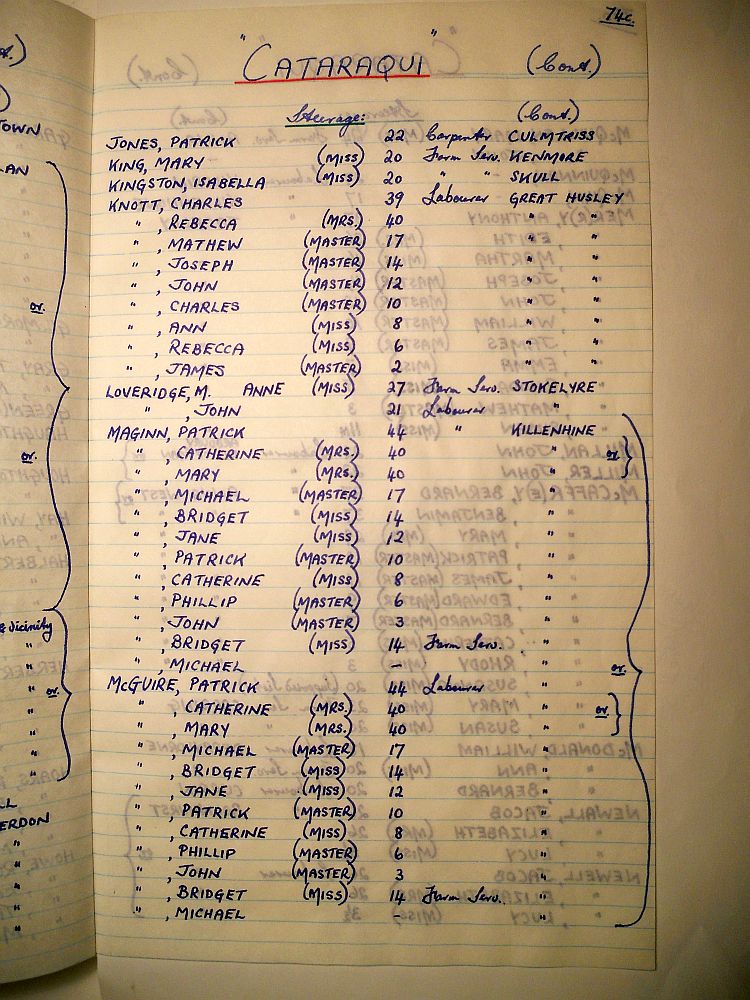 74c.
"CATARAQUI" (Cont.)
Steerage: (Cont.)
JONES, PATRICK 22 Carpenter CULMTRISS
KING, MARY (MISS) 20 Farm Serv. KENMORE
KINGSTON, ISABELLA (MISS) 20 " " SKULL
KNOTT, CHARLES 39 Labourer GREAT HUSLEY
" , REBECCA (MRS.) 40 " "
" , MATHEW (MASTER) 17 " "
" , JOSEPH (MASTER) 14 " "
" , JOHN (MASTER) 12 " "
" , CHARLES (MASTER) 10 " "
" , ANN (MISS) 8 " "
" , REBECCA (MISS) 6 " "
" , JAMES (MASTER) 2 " "
LOVERIDGE, M. ANNE (MISS) 27 Farm Serv. STOKELYRE
" , JOHN 21 Labourer "
MAGINN, PATRICK 44 " KILLENHINE
" , CATHERINE (MRS.) 40 " or.
" , MARY (MRS.) 40 "
" , MICHAEL (MASTER) 17 "
" , BRIDGET (MISS) 14 "
" , JANE (MISS) 12 "
" , PATRICK (MASTER) 10 "
" , CATHERINE (MISS) 8 "
" , PHILLIP (MASTER) 6 "
" , JOHN (MASTER) 3 "
" , BRIDGET (MISS) 14 Farm Serv. "
" , MICHAEL - " or.
McGUIRE, PATRICK 44 Labourer "
" , CATHERINE (MRS.) 40 " or.
" , MARY (MRS.) 40 "
" , MICHAEL (MASTER) 17 "
" , BRIDGET (MISS) 14 "
" , JANE (MISS) 12 "
" , PATRICK (MASTER) 10 "
" , CATHERINE (MISS) 8 "
" , PHILLIP (MASTER) 6 "
" , JOHN (MASTER) 3 "
" , BRIDGET (MISS) 14 Farm Serv. "
" , MICHAEL - "